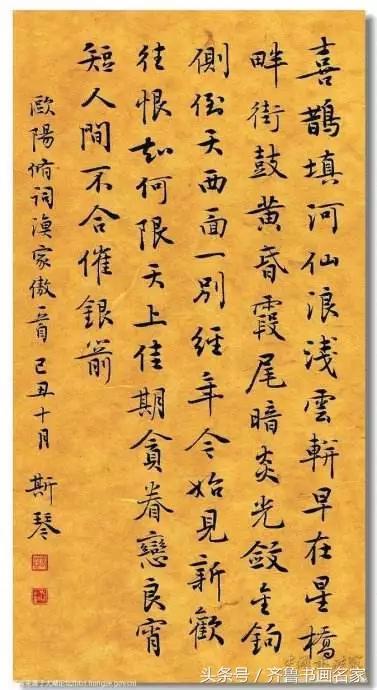 喜鵲填河仙浪淺雲軿早在星橋
畔街鼓黃昏霞尾暗炎光斂金鉤
側倒天西面一別經年今始見新歡
往恨知何限天上佳期貪眷戀良宵
短人間不合催銀箭
歐陽脩詞漁家傲一首 己丑十月 斯琴
头条号/齐鲁书画名家